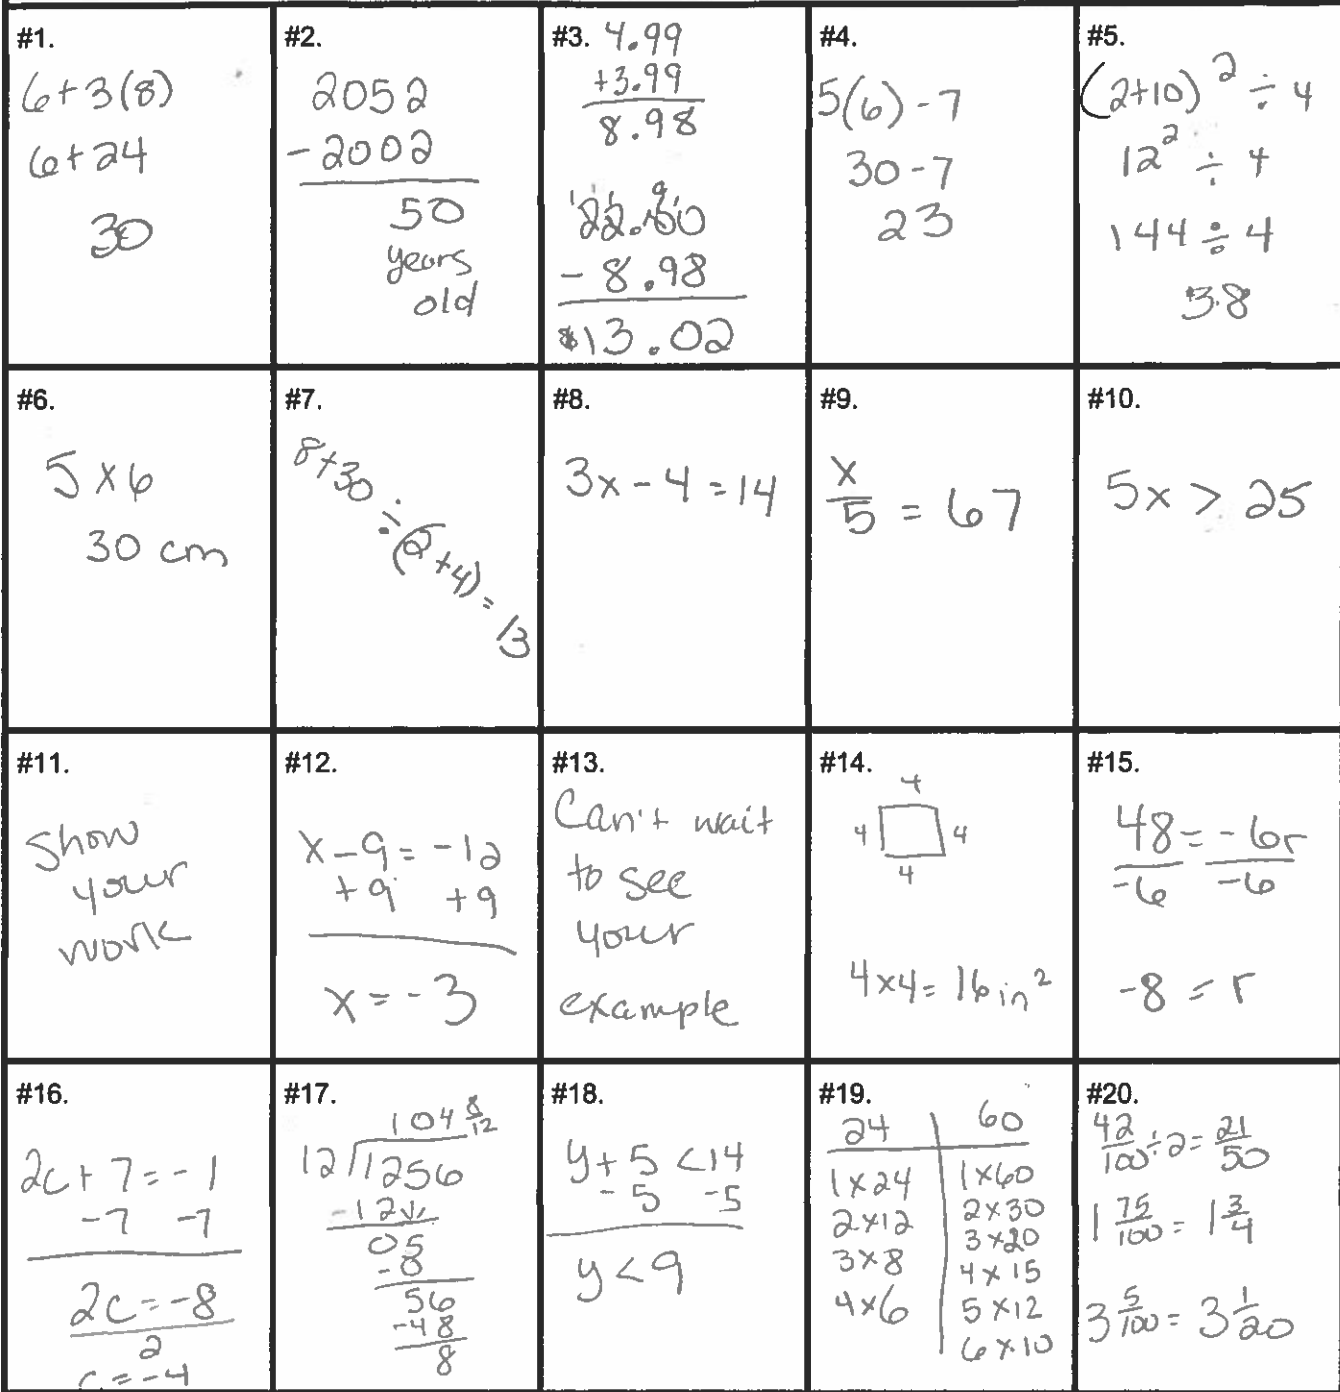 #1.
6+3(8)
6+24
30
#2.
2052
-2002
50
years
old
#3.
4.99
+3.99
8.98
22.00
- 8.98
$13.02
#4.
5(6)-7
30-7
23
#5.
(2+10)² ÷ 4
12² ÷ 4
144 ÷ 4
38
#6.
5x6
30 cm
#7.
8+30÷(2+4)=13
#8.
3x-4=14
#9.
x/5 = 67
#10.
5x > 25
#11.
Show
your
work
#12.
x-9=-12
+9 +9
x=-3
#13.
Can't wait
to see
your
example
#14.
4
4 4
4
4x4=16in²
#15.
48=-6r
-6 -6
-8=r
#16.
2c+7=-1
-7 -7
2c=-8
2
c=-4
#17.
104 8/12
12 1256
-12
05
-8
56
-48
8
#18.
y+5<14
-5 -5
y<9
#19.
24 60
1x24 1x60
2x12 2x30
3x8 3x20
4x6 4x15
5x12
6x10
#20.
42/100÷2=21/50
1 75/100=1 3/4
3 5/100=3 1/20